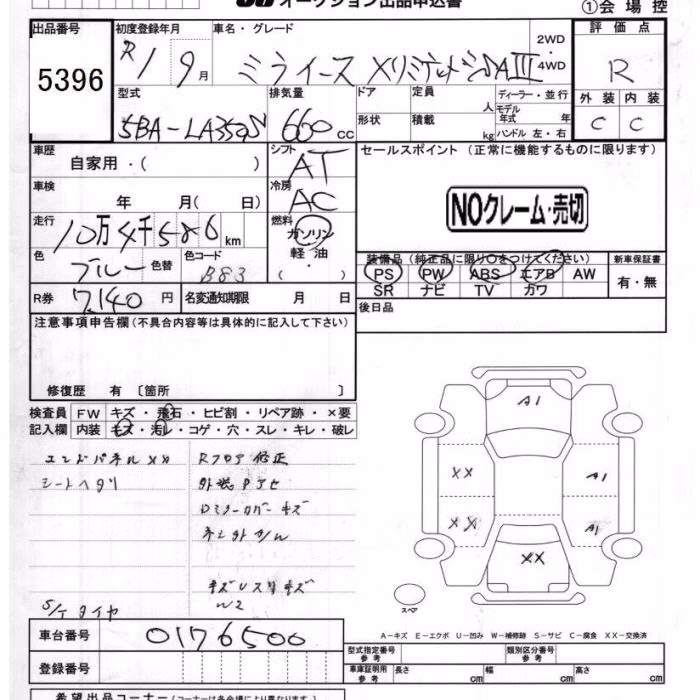 オークション出品申込書
①会場控
出品番号 初度登録年月 車名・グレード 評価点
5396
R1 9月 ミライース XリミテッドSAⅢ 2WD・4WD R
型式 排気量 ドア 定員 人 ディーラー・並行 外装 内装
5BA-LA350S 660cc 形状 積載 kg モデル年式 年 ハンドル 左・右 C C
車歴 自家用・( ) シフト AT
セールスポイント (正常に機能するものに限ります)
車検 年 月( 日) 冷房 AC
NOクレーム・売切
走行 10万4千586km 燃料 ガソリン・軽油・( )
色 ブルー 色替 色コード B83
装備品(純正品に限り○をつけてください) 新車保証書
PS PW ABS エアB AW 有・無
SR ナビ TV カワ
R券 7,140円 名変通知期限 月 日
後日品
注意事項申告欄(不具合内容等は具体的に記入して下さい)
修復歴 有〔箇所 〕
検査員 FW キズ・飛石・ヒビ割・リペア跡・×要
記入欄 内装 キズ・汚レ・コゲ・穴・スレ・キレ・破レ
エンドパネルXX Rフロア修正
シートヘタリ 外装Pアセ
Dミラーカバーキズ
A1
XX A1
XX A1
XX
スペア
S/Tタイヤ W2
A−キズ E−エクボ U−凹み W−補修跡 S−サビ C−腐食 XX−交換済
車台番号 0176500
型式指定番号 参考 類別区分番号 参考
登録番号
車庫証明用 参考 長さ cm 幅 cm 高さ cm
希望出品コーナー(コーナーは各会場により異なります)